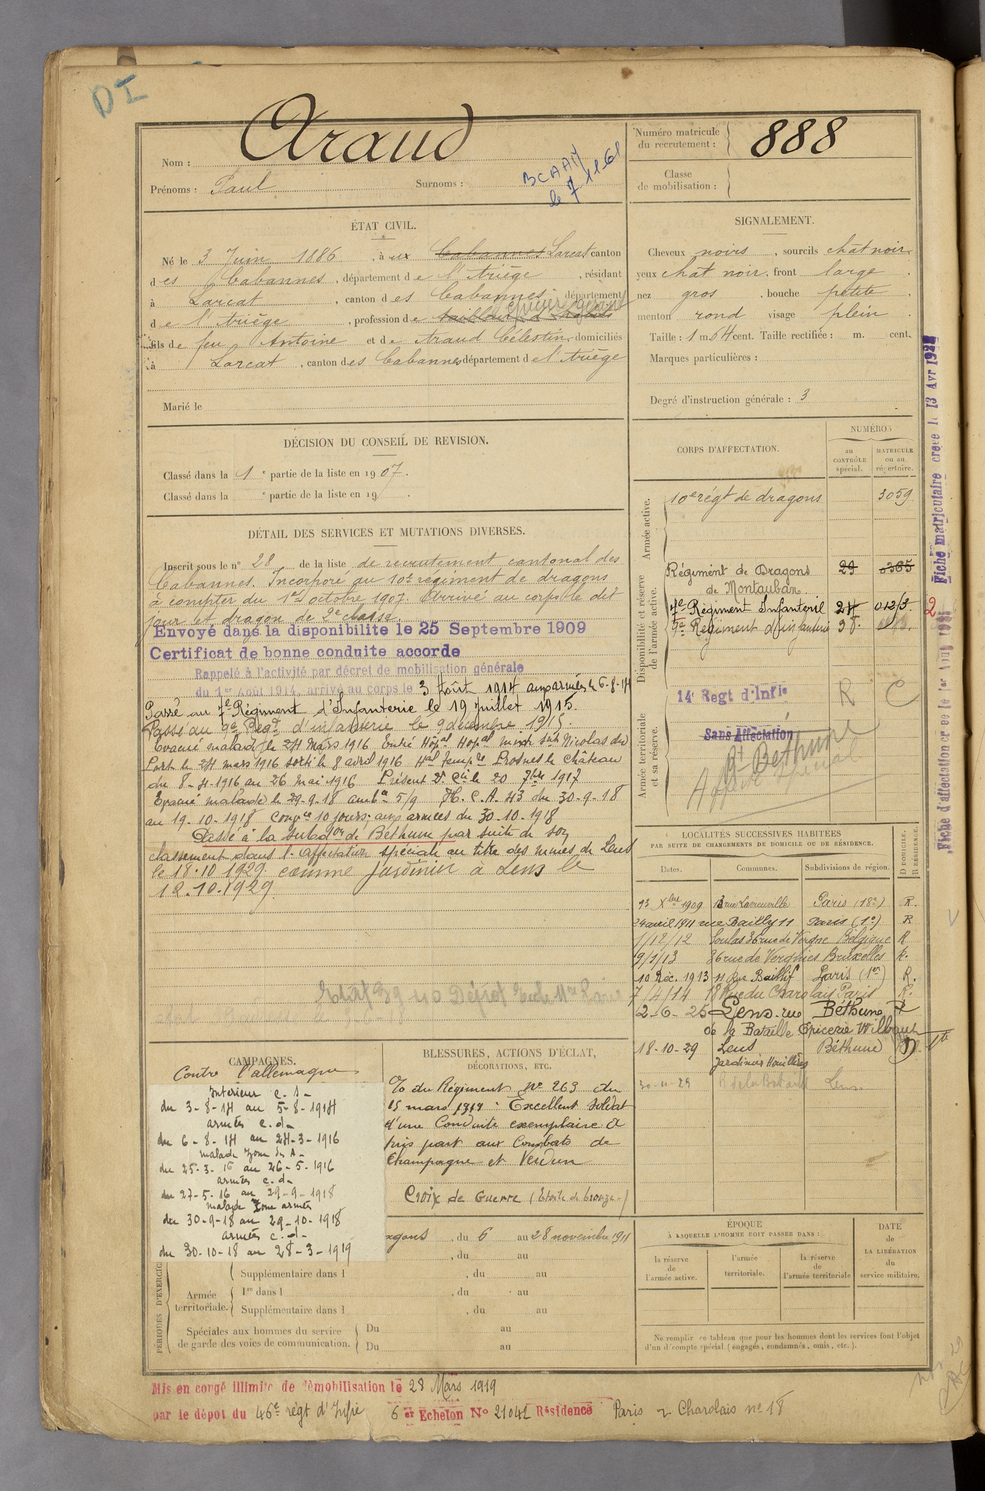 DI
Nom : Araud
Prénoms : Paul Surnoms :
BCAAM
le 7 11 61
Numéro matricule du recrutement : 888
Classe de mobilisation :
ÉTAT CIVIL.
Né le 3 Juin 1886, à Cabannes Larcat canton
des Cabannes, département de l'Ariège, résidant
à Larcat, canton des Cabannes, département
de l'Ariège, profession de
fils de feu Antoine et de Araud Célestin, domiciliés
à Larcat, canton des Cabannes département de l'Ariège
Marié le
SIGNALEMENT.
Cheveux noirs, sourcils chat noir
yeux chat noir. front large.
nez gros, bouche petite
menton rond visage plein.
Taille : 1 m 54 cent. Taille rectifiée : m. cent.
Marques particulières :
Degré d'instruction générale : 3
DÉCISION DU CONSEIL DE REVISION.
Classé dans la 1e partie de la liste en 1907.
Classé dans la e partie de la liste en 19 .
DÉTAIL DES SERVICES ET MUTATIONS DIVERSES.
Inscrit sous le n° 28 de la liste de recrutement cantonal des
Cabannes. Incorporé au 10e régiment de dragons
à compter du 1er octobre 1907. Arrivé au corps le dit
jour et dragon de 2e classe.
Envoyé dans la disponibilite le 25 Septembre 1909
Certificat de bonne conduite accorde
Rappelé à l'activité par décret de mobilisation générale
du 1er Août 1914, arrivé au corps le 3 Août 1914 aux armées le 6-8-14
Passé au 7e Régiment d'Infanterie le 19 juillet 1915.
Passé au 9e Regt d'infanterie le 9 décembre 1915.
Evacué malade le 24 mars 1916 Entré Hopal Hopal mixte Snt Nicolas du
Port le 24 mars 1916 sorti le 8 avril 1916 Hal temp. Brosnes le Château
du 8-4-1916 au 26 mai 1916 Présent Cie le 20 7bre 1917
Evacué malade le 29-9-18 5/9 H.C.A. 43 du 30-9-18
au 19-10-1918 Congé 10 jours; aux armées du 30-10-1918
Passé à la subdon de Béthune par suite de son
classement dans l'affectation spéciale au titre des mines de Lens
le 18.10 1929 comme Jardinier à Lens le
18.10.1929
CORPS D'AFFECTATION.
NUMÉROS
au CONTRÔLE spécial.
MATRICULE ou au répertoire.
Armée active.
10e régt de dragons 3059
Disponibilité et réserve de l'armée active.
Régiment de Dragons 29
de Montauban
7e Régiment Infanterie 24 0123.
9e Régiment d'infanterie
Armée territoriale et sa réserve.
14e Regt d'Infie R C
Sans Affectation
St Béthune
Affecté spécial
Fiche matriculaire créée le 13 Avr
LOCALITÉS SUCCESSIVES HABITÉES
PAR SUITE DE CHANGEMENTS DE DOMICILE OU DE RÉSIDENCE.
Dates. Communes. Subdivisions de région. D DOMICILE. R RÉSIDENCE.
13 Xbre 1909 Paris (18e) R.
24 avril 1911 rue Bailly 11 Paris (1e) R
1/12/12 36 rue de Vergne Belgique R
9/1/13 36 rue de Vergnies Bruxelles R.
10 Déc. 1913 11 Rue Baillif Paris (1er) R.
7/4/14 18 Rue du Charolais Paris R.
2-6-25 Lens rue Béthune R
de la Bataille Epicerie
18-10-29 Lens Béthune D
Jardinier Houillères
30-11-29 Lens
CAMPAGNES.
Contre l'allemagne
Intérieur c. s.
du 3-8-14 au 5-8-1914
armées c.d.
du 6-8-14 au 24-3-1916
malade zone des A.
du 25-3-16 au 26-5-1916
armées c.d.
du 27-5-16 au 29-9-1918
malade Zone armées
du 30-9-18 au 29-10-1918
armées c.d.
du 30-10-18 au 28-3-1919
BLESSURES, ACTIONS D'ÉCLAT,
DÉCORATIONS, ETC.
O/ du Régiment N° 263 du
15 mars 1917 : Excellent soldat
d'une Conduite exemplaire a
pris part aux Combats de
Champagne et Verdun
Croix de Guerre (Etoile de bronze)
PÉRIODES D'EXERCICES
ragons, du 6 au 28 novembre 1911
, du au
Supplémentaire dans l , du au
Armée territoriale.
1re dans l , du au
Supplémentaire dans l , du au
Spéciales aux hommes du service
de garde des voies de communication.
Du au
Du au
ÉPOQUE
A LAQUELLE L'HOMME DOIT PASSER DANS :
la réserve de l'armée active.
l'armée territoriale.
la réserve de l'armée territoriale
DATE de LA LIBÉRATION du service militaire.
Ne remplir ce tableau que pour les hommes dont les services font l'objet
d'un décompte spécial (engagés, condamnés, omis, etc.).
Mis en congé illimité de démobilisation le 28 Mars 1919
par le dépot du 46e régt d'Infie 6e Echelon No 21042 Résidence Paris r. Charolais n° 18